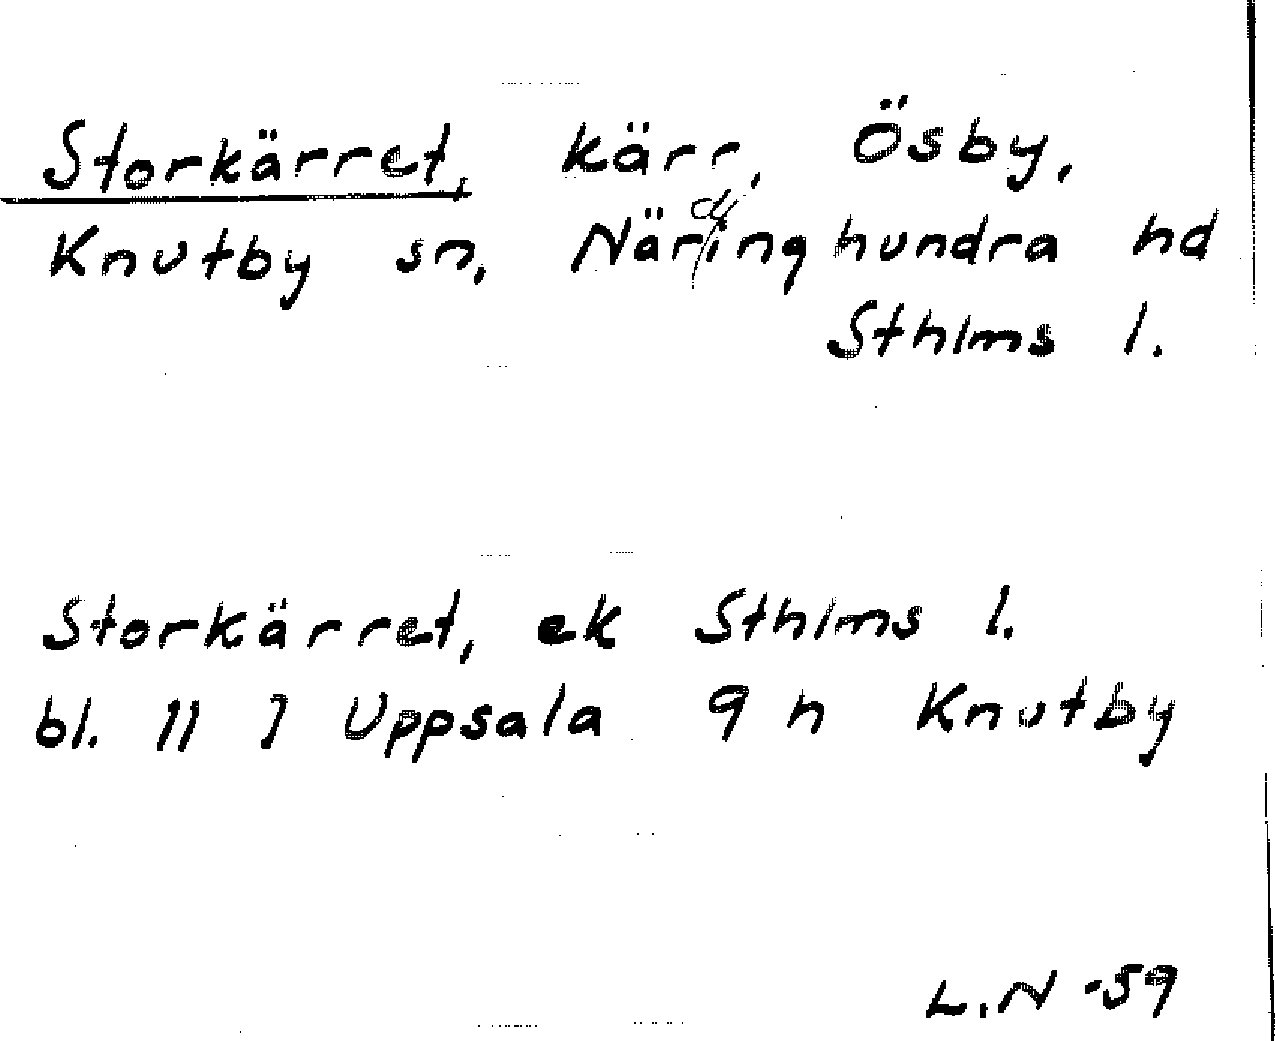 Storkärret, kärr, Ösby,
Knutby sn, Närdinghundra hd
Sthlms l.
Storkärret, ek Sthlms l.
bl. 11 I Uppsala 9 h Knutby
L.N -59